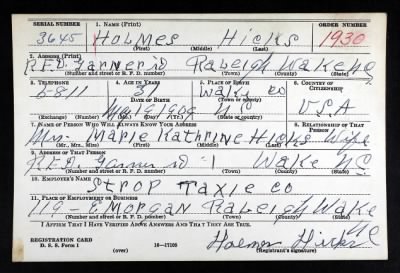 SERIAL NUMBER 1. NAME (Print) ORDER NUMBER
3645 HOLMES Hicks 1930
(First) (Middle) (Last)
2. ADDRESS (Print)
R.F.D. Garner rd Raleigh Wake NC
(Number and street or R. F. D. number) (Town) (County) (State)
3. TELEPHONE 4. AGE IN YEARS 5. PLACE OF BIRTH 6. COUNTRY OF CITIZENSHIP
5-8811 31 Wake co
DATE OF BIRTH (Town or county)
1909 NC USA
(Exchange) (Number) (Mo.) (Day) (Yr.) (State or country)
7. NAME OF PERSON WHO WILL ALWAYS KNOW YOUR ADDRESS 8. RELATIONSHIP OF THAT PERSON
Mrs- Marie Kathrine Hicks Wife
(Mr., Mrs., Miss) (First) (Middle) (Last)
9. ADDRESS OF THAT PERSON
R.F.D. Garner rd -1 Wake NC
(Number and street or R. F. D. number) (Town) (County) (State)
10. EMPLOYER'S NAME
STROP Taxie co
11. PLACE OF EMPLOYMENT OR BUSINESS
119- E Morgan Raleigh Wake NC
(Number and street or R. F. D. number) (Town) (County) (State)
I AFFIRM THAT I HAVE VERIFIED ABOVE ANSWERS AND THAT THEY ARE TRUE.
REGISTRATION CARD
D. S. S. Form 1 (over) 16-17105
Holmes Hicks
(Registrant's signature)